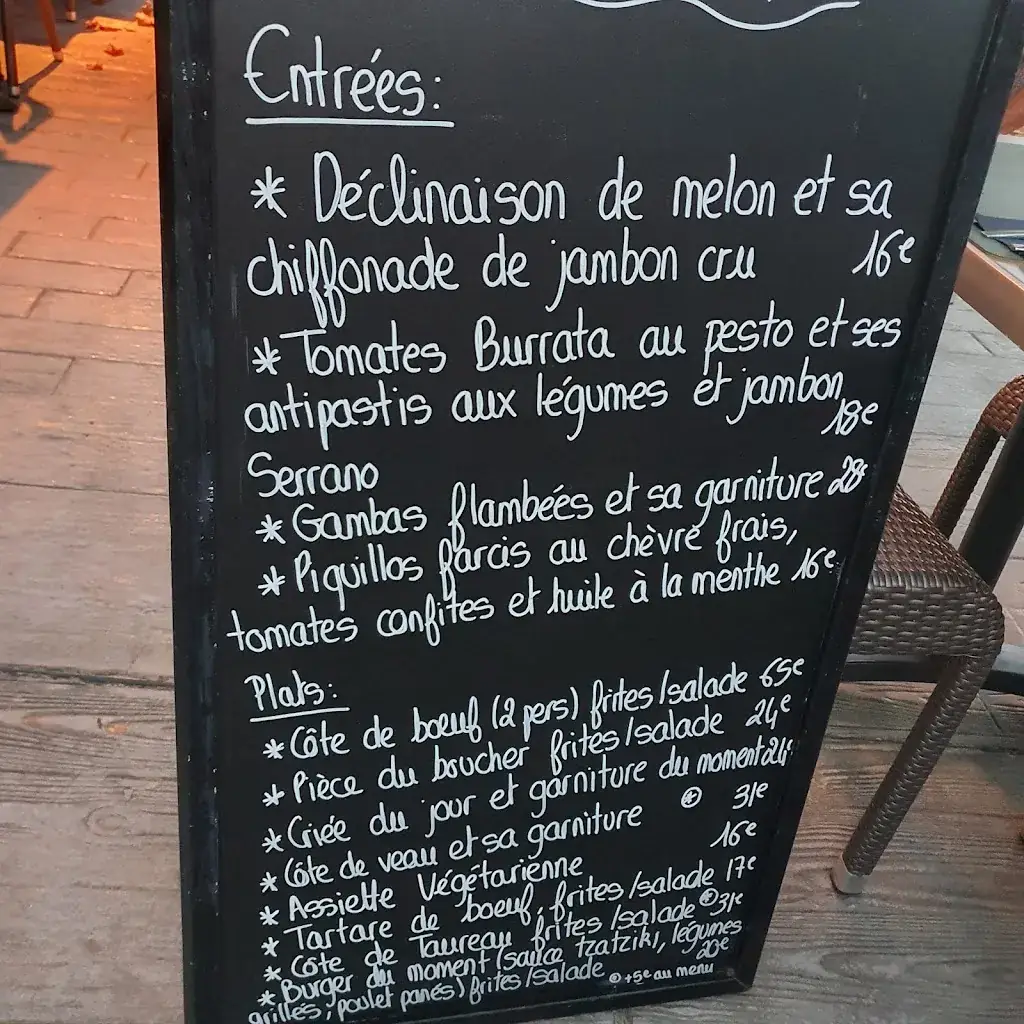 Entrées:
* Déclinaison de melon et sa
chiffonade de jambon cru 16€
* Tomates Burrata au pesto et ses
antipastis aux légumes et jambon 18€
Serrano
* Gambas flambées et sa garniture 28€
* Piquillos farcis au chèvre frais,
tomates confites et huile à la menthe 16€
Plats:
* Côte de boeuf (2 pers) frites/salade 65€
* Pièce du boucher frites/salade 24€
* Criée du jour et garniture du moment 24€
* Côte de veau et sa garniture ⊛ 31€
* Assiette Végétarienne 16€
* Tartare de boeuf, frites/salade 17€
* Côte de Taureau frites/salade ⊛ 31€
* Burger du moment (sauce tzatziki, légumes
grillés, poulet panés) frites/salade 20€
⊛ +5€ au menu